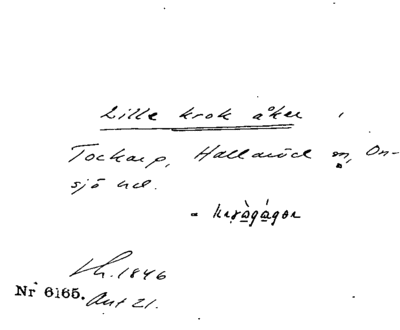 Lille krok åker,
Tockarp, Hallaröd sn, On-
sjö hd.
Lh. 1846
Nr 6165. Ant 21.